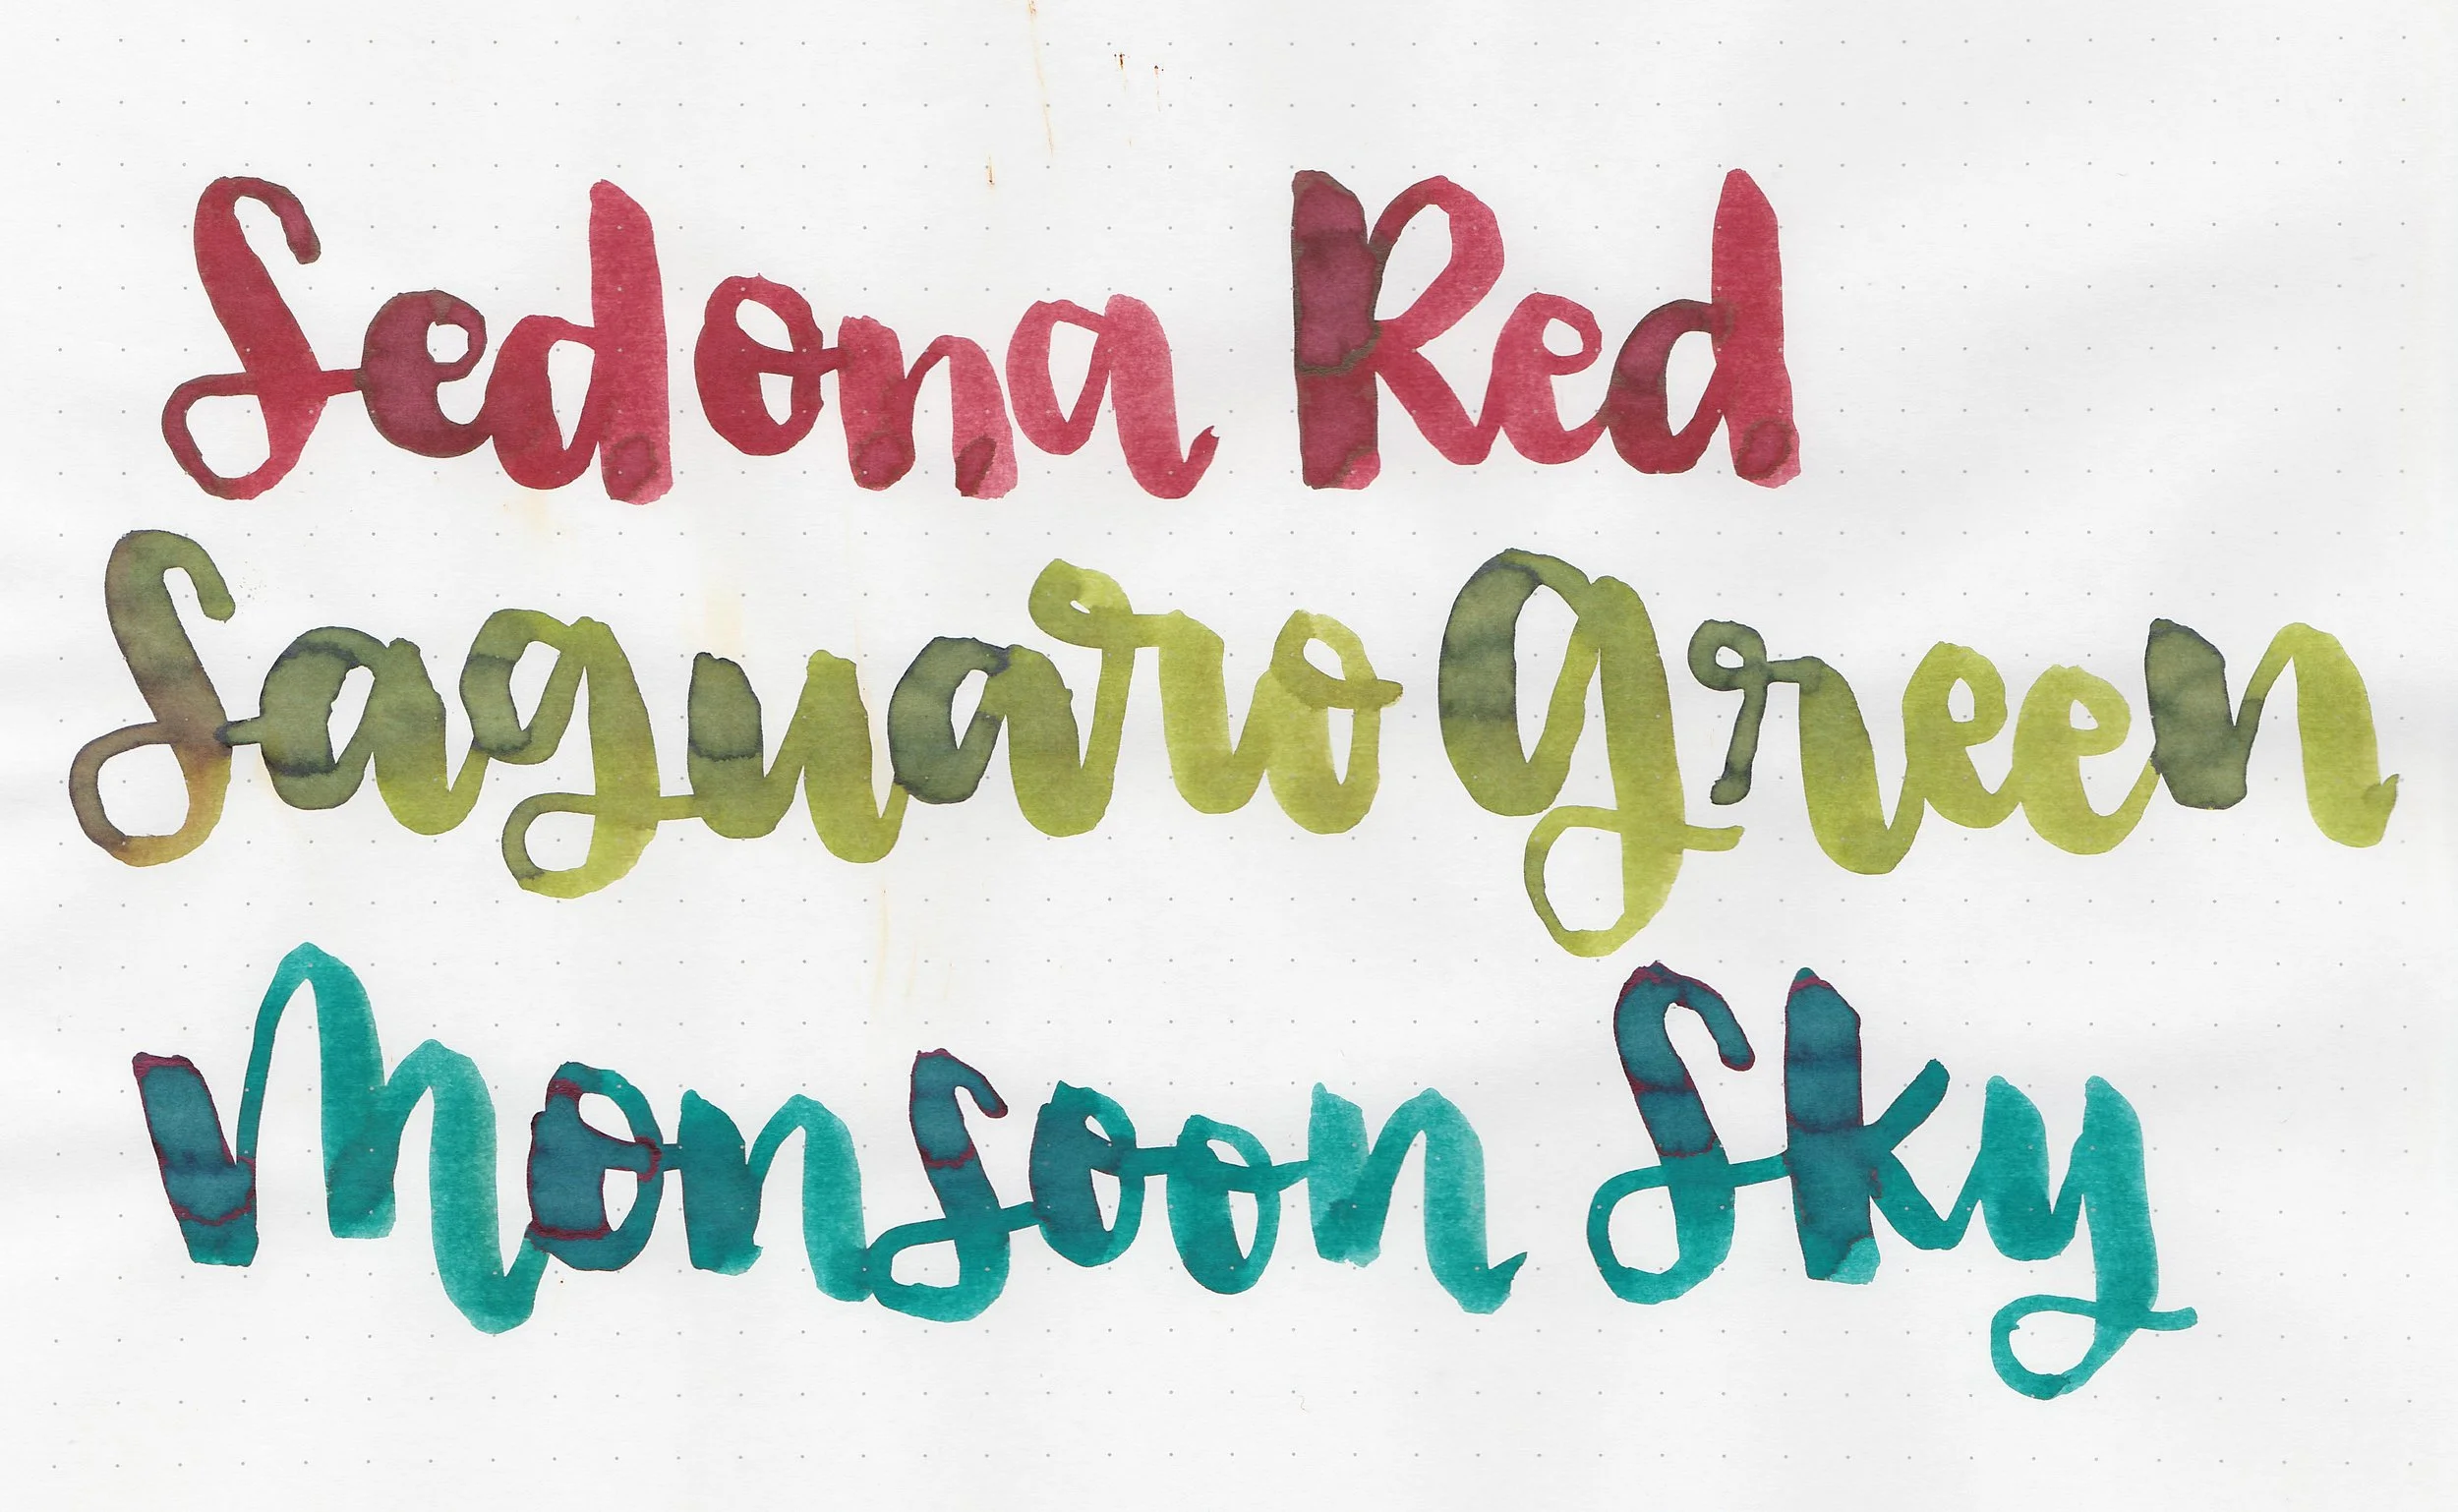 Sedona Red
Saguaro Green
Monsoon Sky